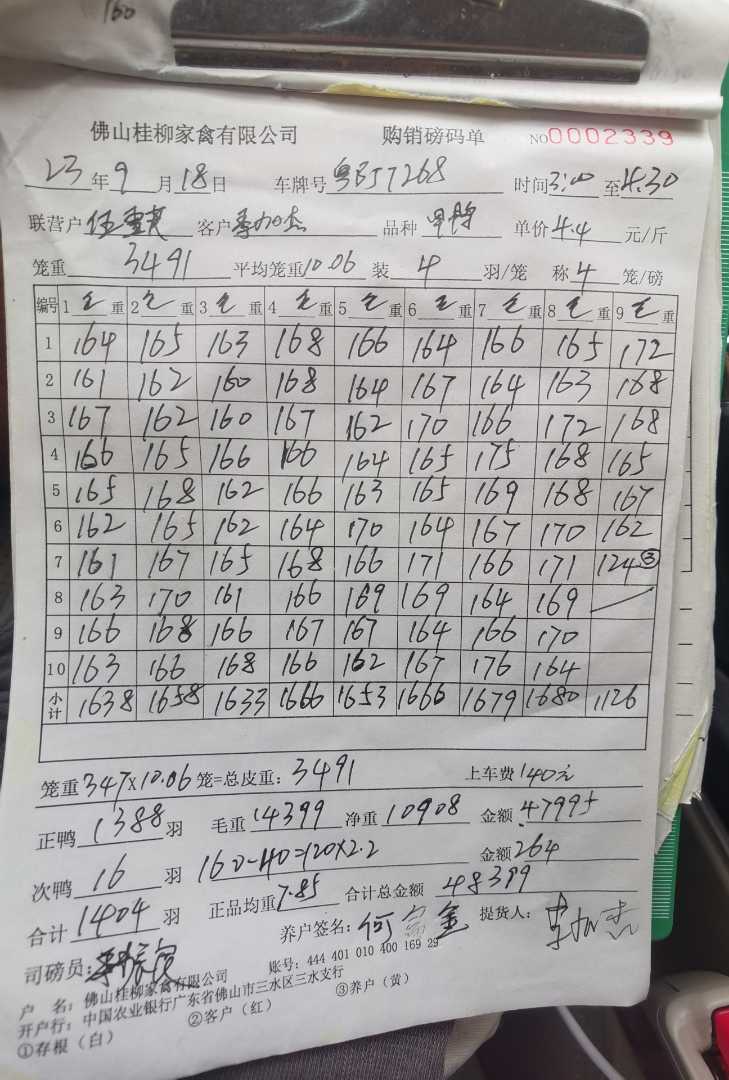 160
佛山桂柳家禽有限公司 购销磅码单 NO0002339
23年9月18日 车牌号粤BJ7268 时间3:00至4:30
联营户 客户李加杰 品种 单价4.4元/斤
笼重3491 平均笼重10.06 装4羽/笼 称4笼/磅
编号 1毛重 2毛重 3毛重 4毛重 5毛重 6毛重 7毛重 8毛重 9毛重
1 164 165 163 168 166 164 166 165 172
2 161 162 160 168 164 167 164 163 168
3 167 162 160 167 162 170 166 172 168
4 166 165 166 166 164 165 175 168 165
5 165 168 162 166 163 165 169 168 167
6 162 165 162 164 170 164 167 170 162
7 161 167 165 168 166 171 166 171 124③
8 163 170 161 166 169 169 164 169
9 166 168 166 167 167 164 166 170
10 163 166 168 166 162 167 176 164
小计 1638 1658 1633 1666 1653 1666 1679 1680 1126
笼重347×10.06笼=总皮重:3491 上车费140元
正鸭1388羽 毛重14399 净重10908 金额47995
次鸭16羽 160-40=120×2.2 金额264
合计1404羽 正品均重7.85 合计总金额48399
司磅员: 养户签名:何 金 提货人:李加杰
户 名:佛山桂柳家禽有限公司 账号:444 401 010 400 169 29
开户行:中国农业银行广东省佛山市三水区三水支行
①存根(白) ②客户(红) ③养户(黄)